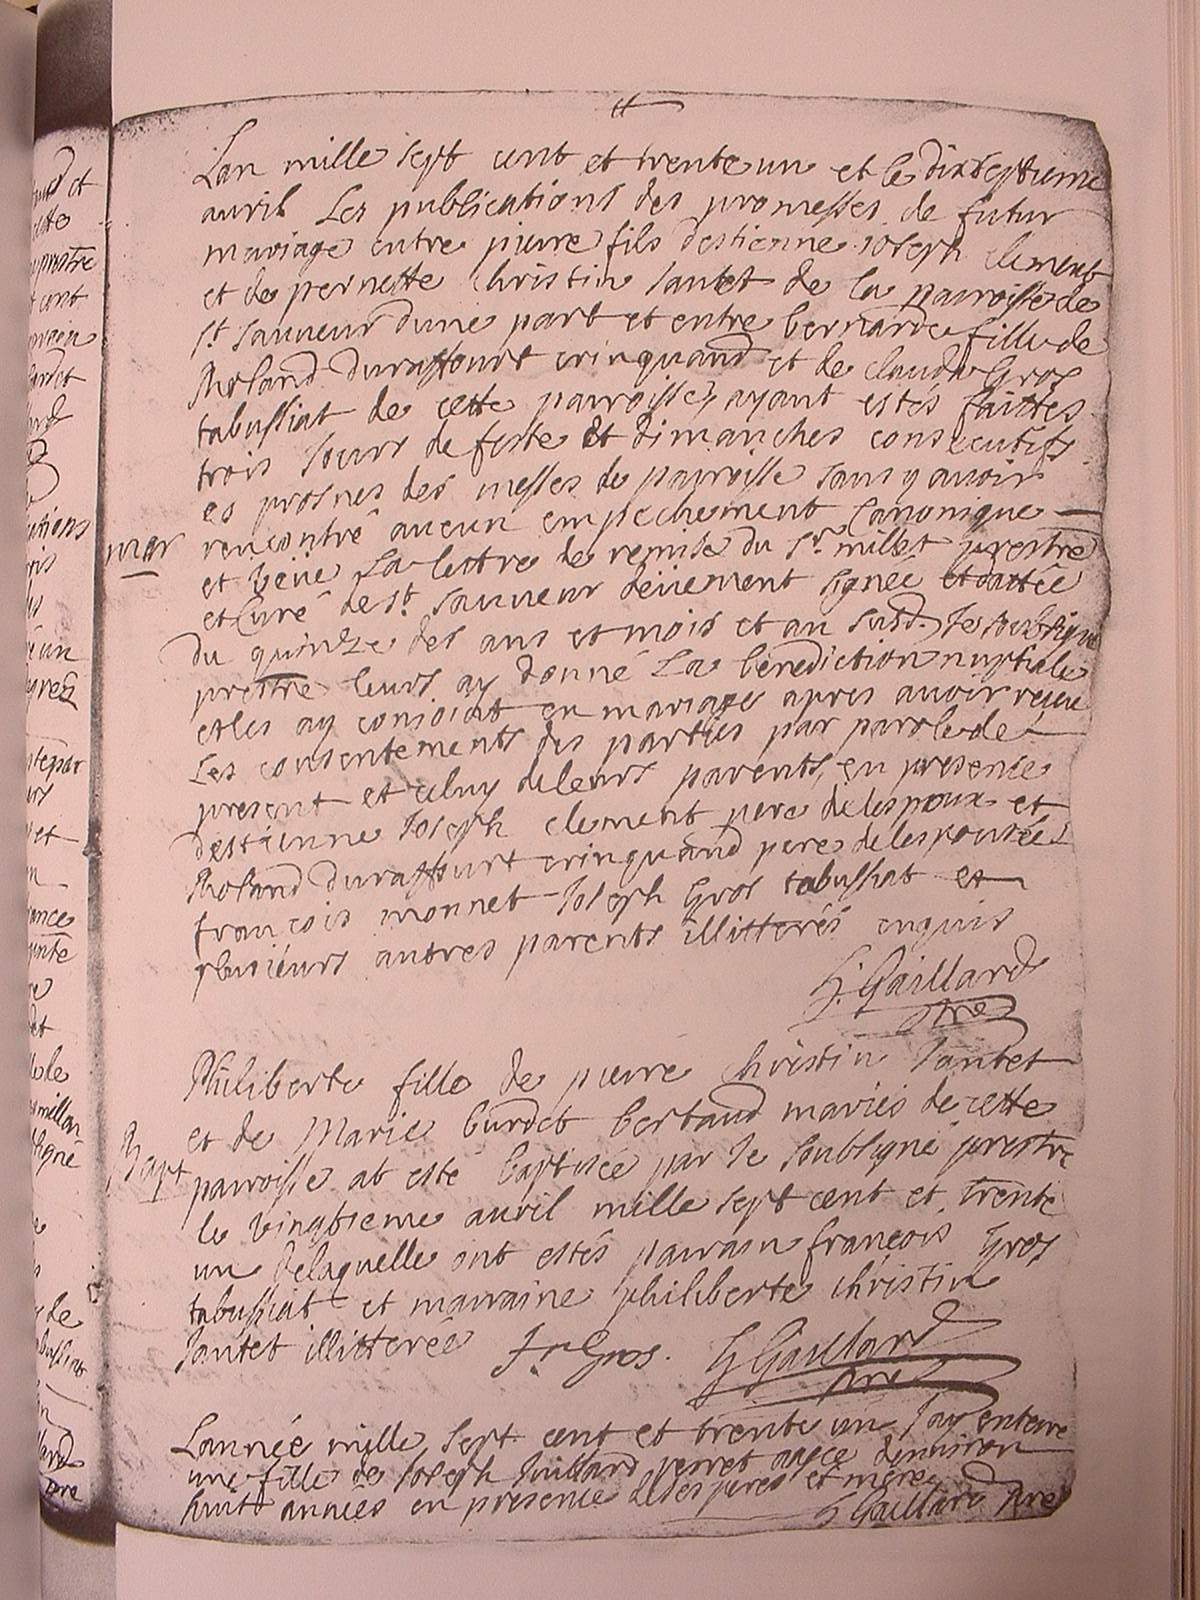 Lan mille sept cent et trente un et le dixseptieme
avril Les publications des promesses de futur
mariage entre pierre fils destienne Joseph clement
et de pernette christin Jantet de la paroisse de
st. sauveur dune part et entre bernarde fille de
Rholand Duraffourt crinquand et de clauda Gros
tabussiat de cette paroisse, ayant estés faittes
trois Jours de feste Et Dimanches consecutifs
es prosnes des messes de paroisse sans y avoir
rencontré aucun empechement Canonique
mar
et veüe La lettre de remise du Sr. millet prestre
et Curé de st. sauveur deüement signée et dattée
du quinze des ans et mois et an susd. Je soubsigné
prestre leurs ay donné La benediction nuptiale
et les ay conjoint en mariage apres avoir receu
Les consentements des parties par parole de
present et celuy de leurs parents, en presence
destienne Joseph clement pere de lespoux et
Rholand Duraffourt crinquand pere de lespousée
francois monnet Joseph Gros tabussiat et
plusieurs autres parents illitterés enquis
G. Gaillard
ptre
Philiberte fille de pierre christin Jantet
et de Marie burdet bertaud mariés de cette
Bapt
paroisse at esté baptisée par Je soubsigné prestre
le vingtieme avril mille sept cent et trente
un delaquelle ont estés parrain françois Gros
tabussiat et marraine philiberte christin
Jantet illitterée fr Gros. G Gaillard
ptre
Lannée mille sept cent et trente un Jay enterré
une fille de Joseph Juillard perret aagée denviron
huit années en presence de ses pere et mere
G Gaillard ptre